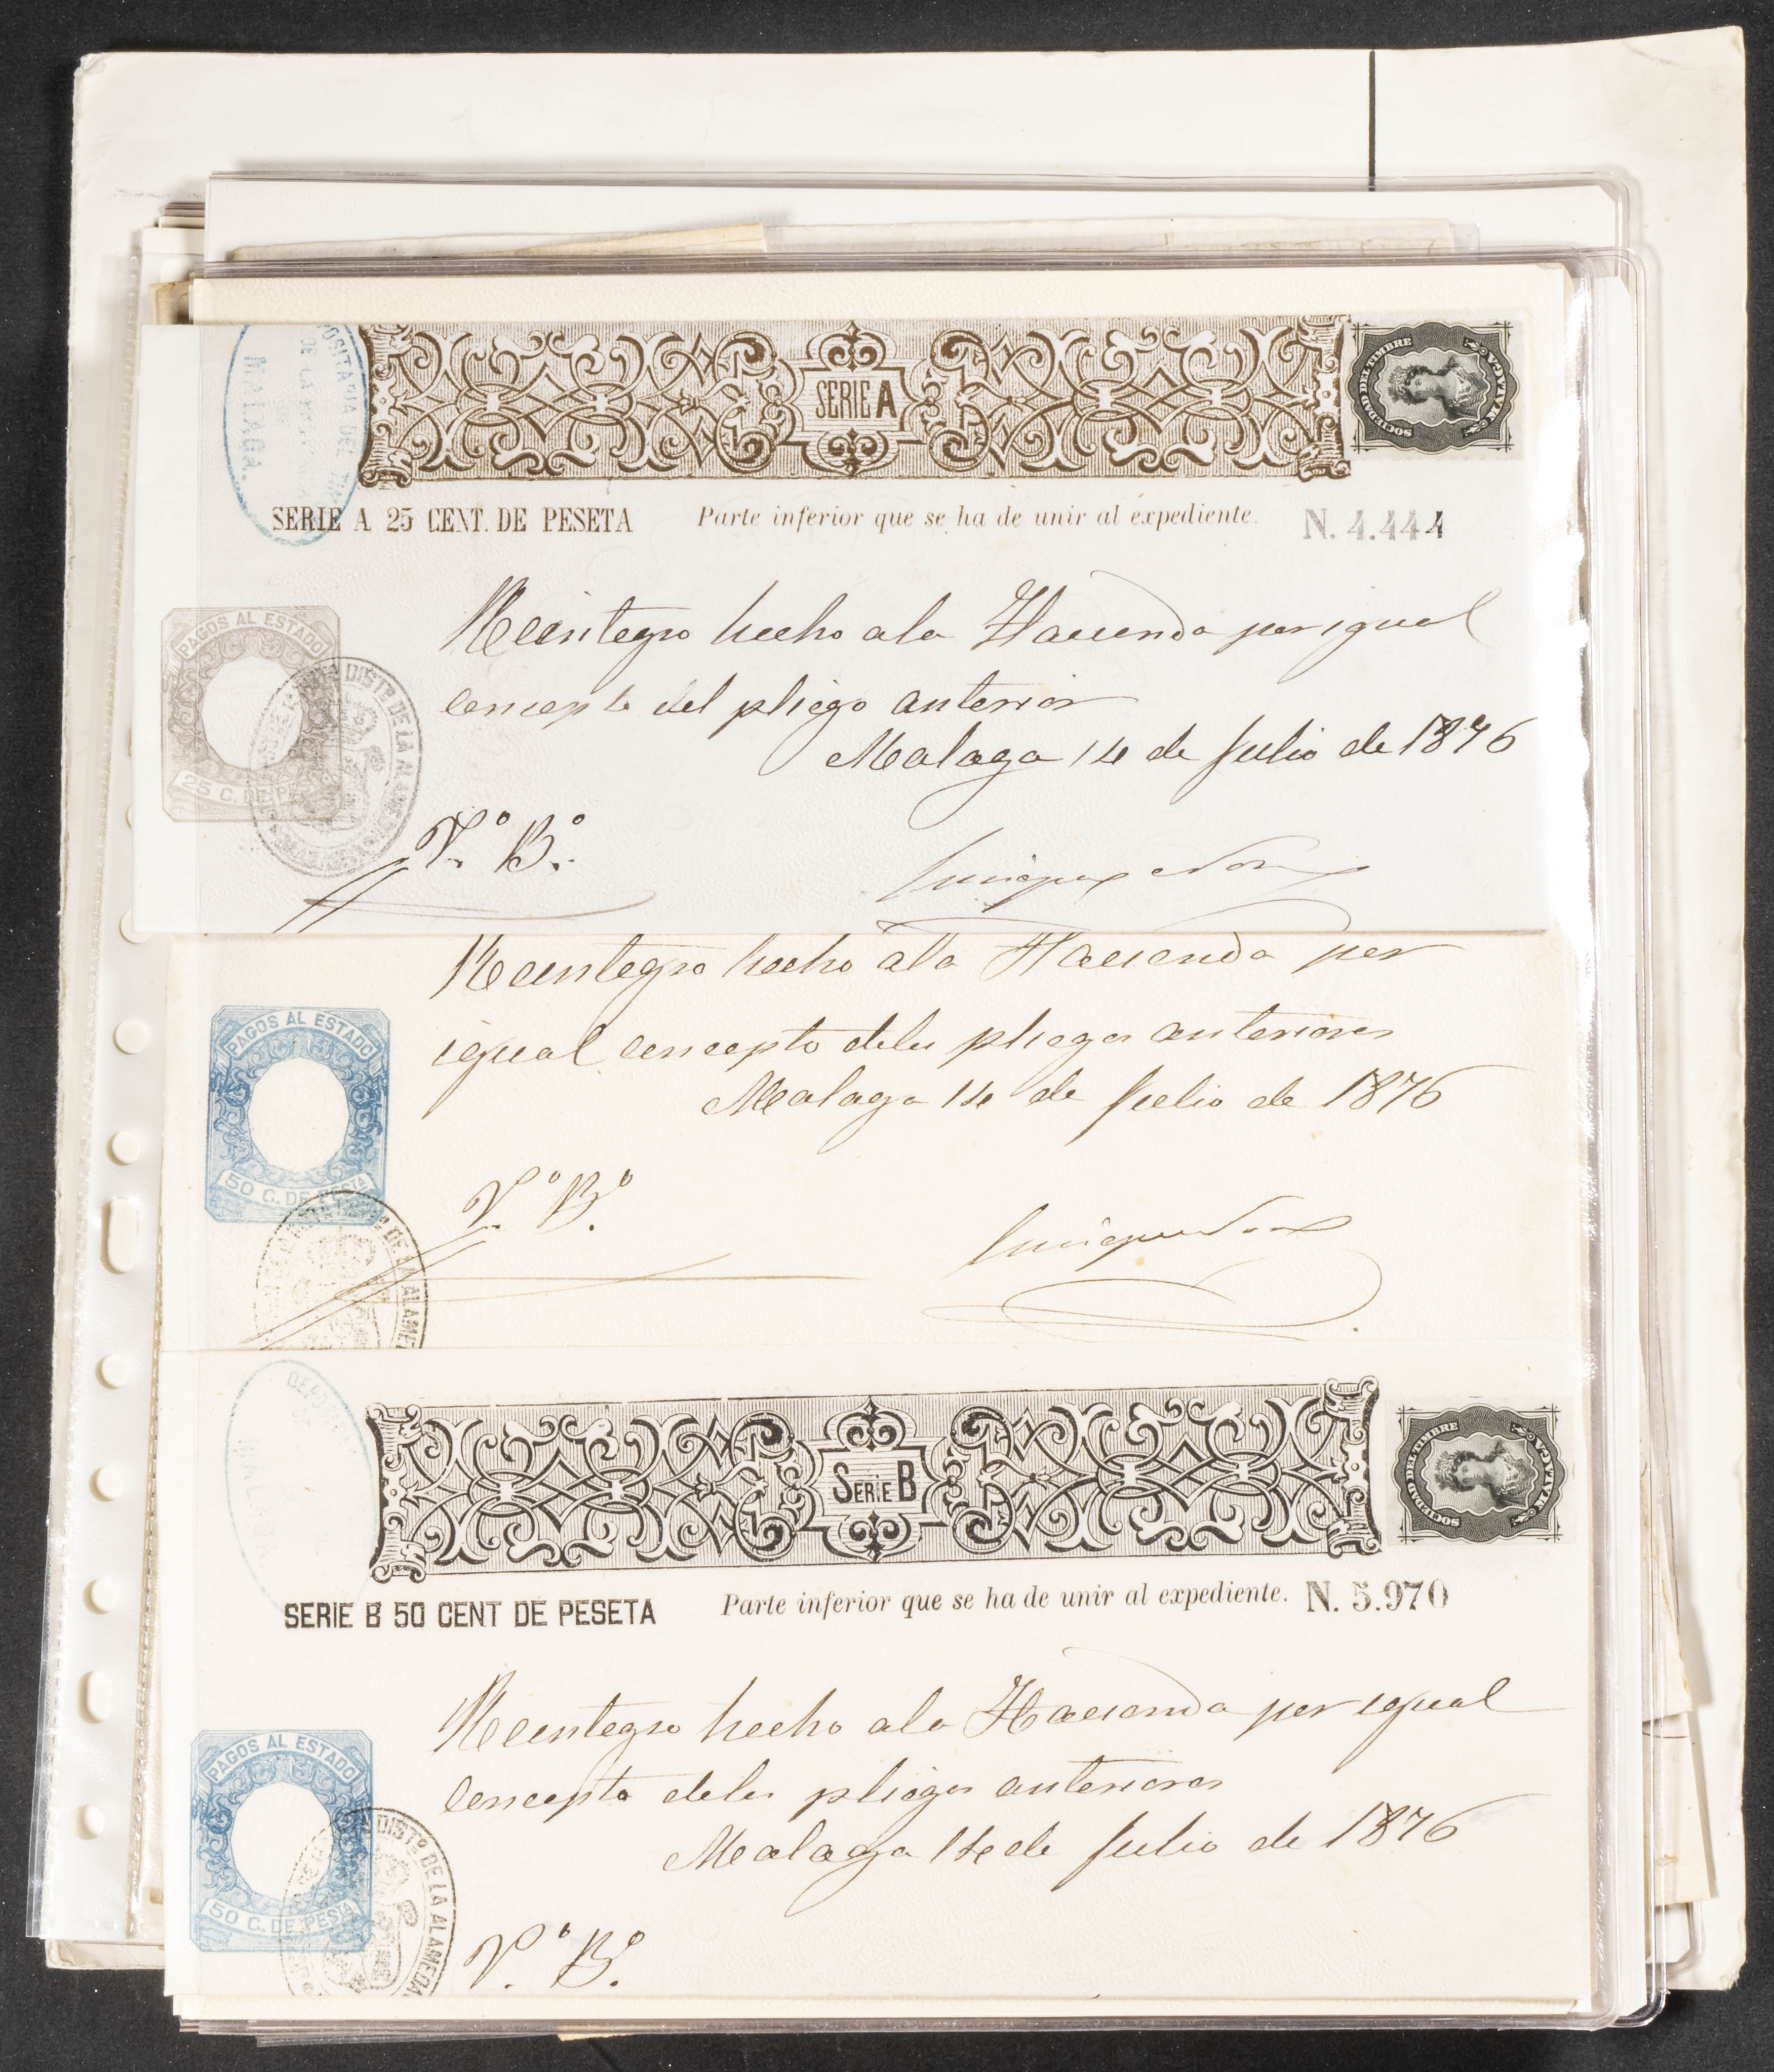 SERIE A
SOCIEDAD DEL TIMBRE
MALAGA
SERIE A 25 CENT. DE PESETA
Parte inferior que se ha de unir al expediente.
N. 4.444
Reintegro hecho a la Hacienda por igual
concepto del pliego anterior
Malaga 14 de Julio de 1876
PAGOS AL ESTADO
25 C. DE PE
DISTº DE LA AL
V.º B.º
Reintegro hecho a la Hacienda por
igual concepto delos pliegos anteriores
Malaga 14 de Julio de 1876
PAGOS AL ESTADO
50 C. DE PESTA
DE LA ALAME
V.º B.º
SERIE B
SOCIEDAD DEL TIMBRE
MALAGA
SERIE B 50 CENT DE PESETA
Parte inferior que se ha de unir al expediente.
N. 5.970
Reintegro hecho a la Hacienda por igual
concepto delos pliegos anteriores
Malaga 14 de Julio de 1876
PAGOS AL ESTADO
50 C. DE PESTA
DISTº DE LA ALAMEDA
V.º B.º